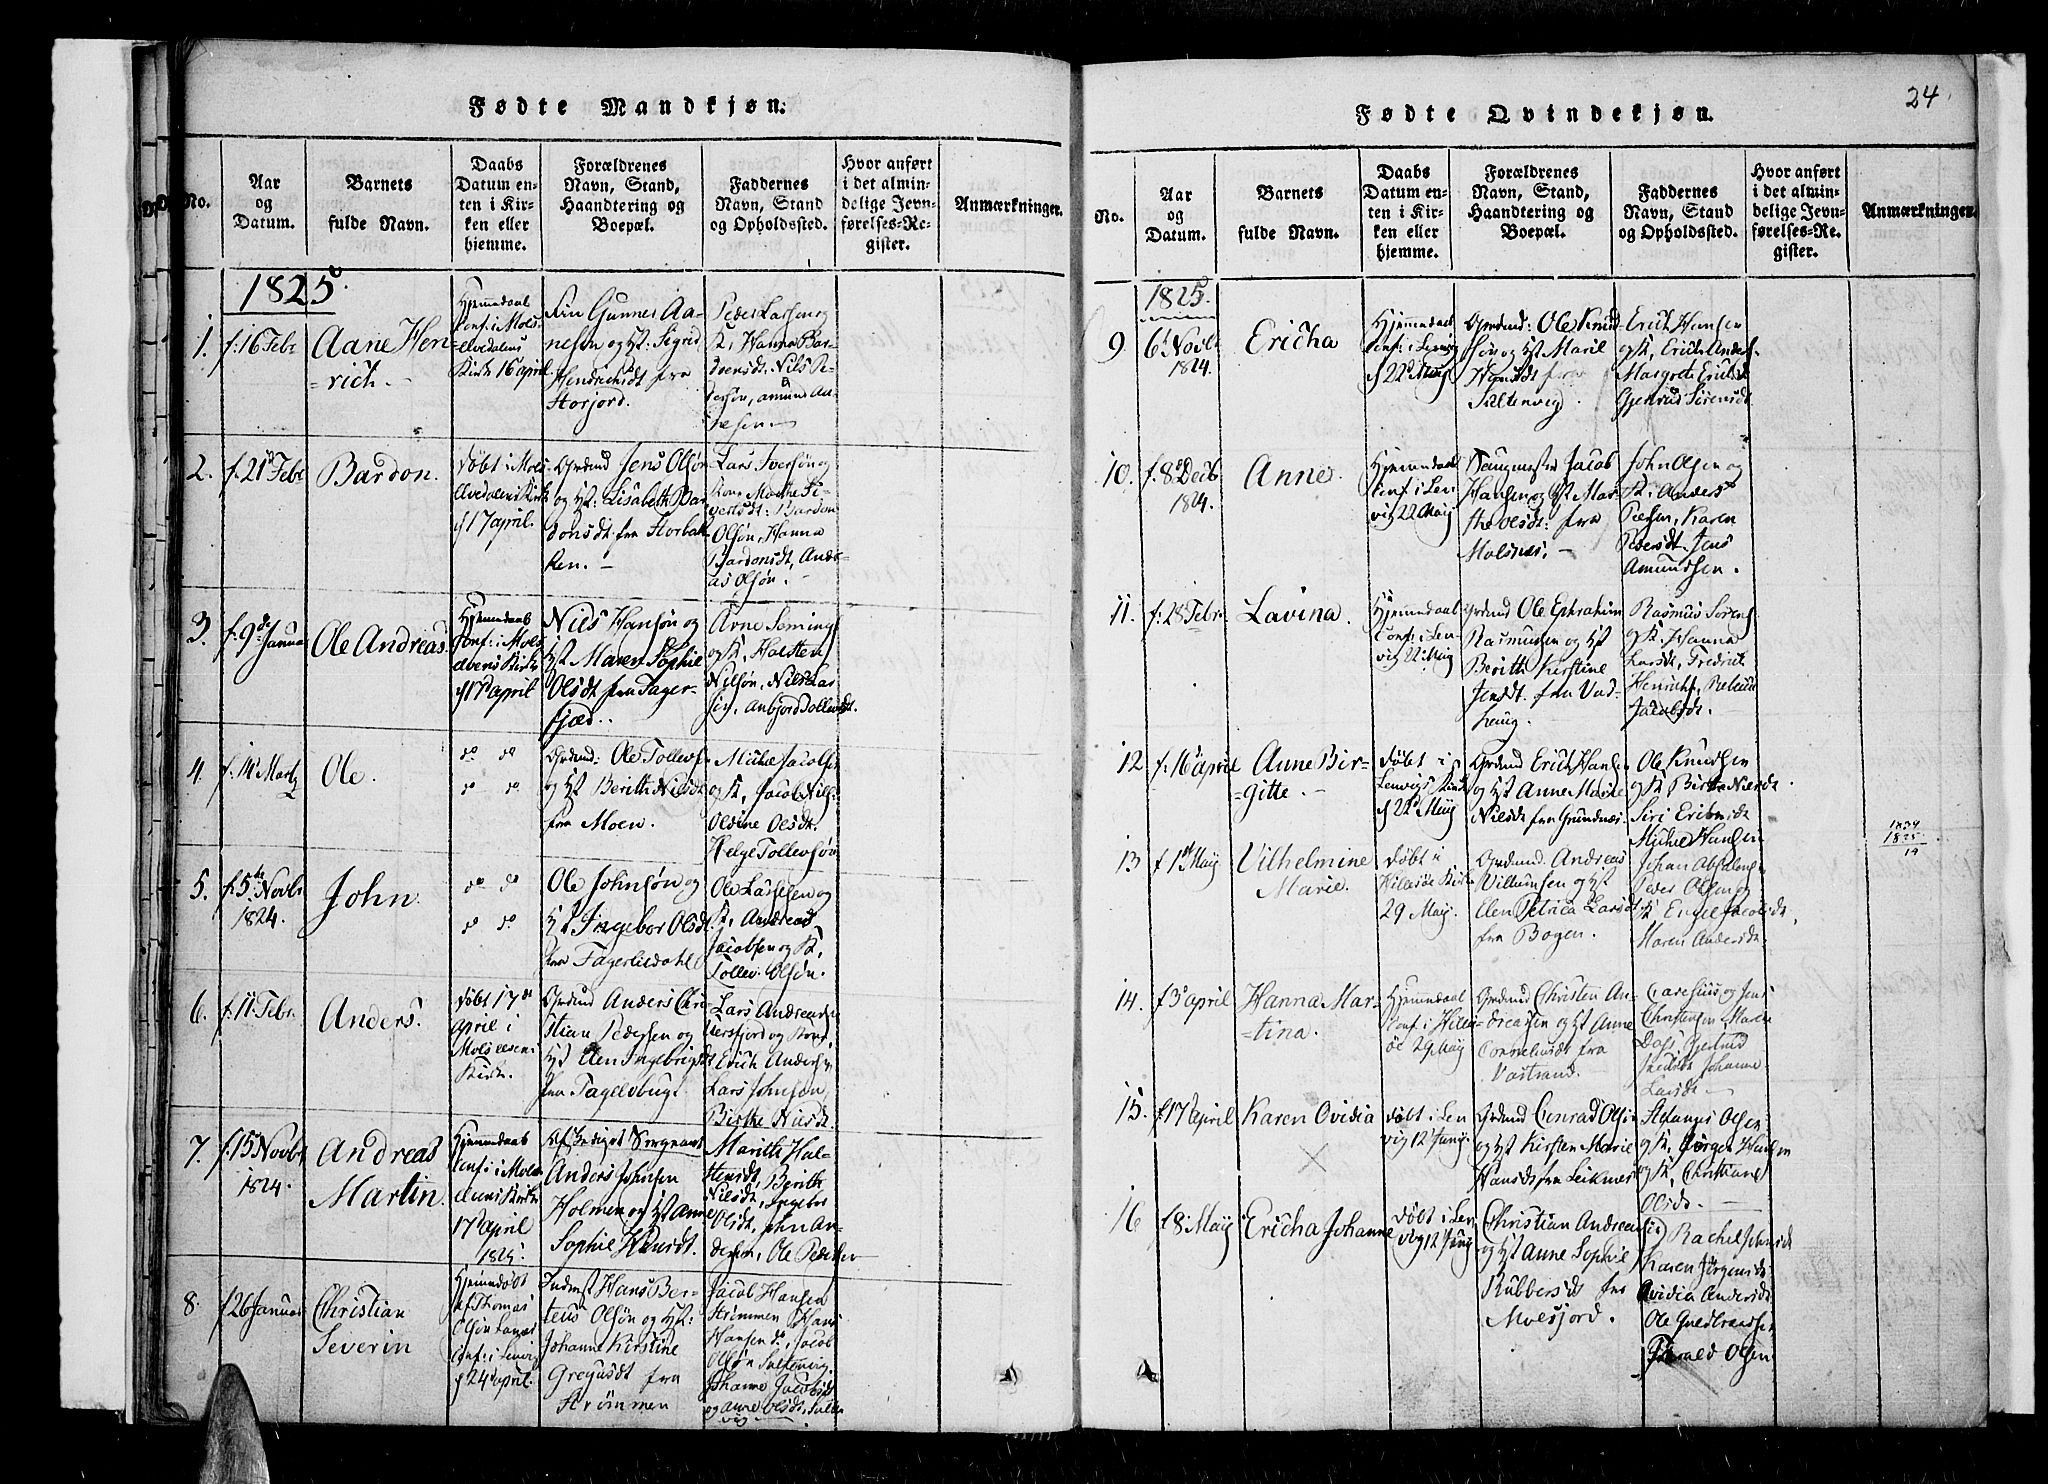 Fødte Mandkjøn.
No.
Aar
og
Datum.
Barnets
fulde Navn.
Daabs
Datum en-
ten i Kir-
ken eller
hjemme.
Forældrenes
Navn, Stand,
Haandtering og
Boepæl.
Faddernes
Navn, Stand
og Opholdssted.
Hvor anført
i det almin-
delige Jevn-
førelses-Re-
gister.
Anmærkninger.
1825
1.
f: 16 Febr
Aane Hen
=rich.
Hjemedaab
Conf: i Mols-
elvedalens
Kirke 16 april
Gunner Aa-
nesen og H: Sigrid
Hendrichsdt fra
Storjord.
Peder Larsen og
K, Hanna Bar-
donsdt. Nils Pe-
dersøn, Amund An-
2.
f. 21 Febr
Bardon.
Døbt i Mols
Elvedalens Kirke
d 17 april.
Grdmd Jens Olsøn
og H: Lisabeth Bar
donsdt. fra Storbak
ken. -
Lars Iversøn og
Kone Marthe Si-
versdt: Bardon
Olsøn, Hanna
Bardonsdt, Andr-
as Olsøn.
3.
f. 9de Januar
Ole Andreas
Hjemedaab
Conf: i Mols
elvens Kirke
d 17 april
Niels Hansøn og
H Maren Sophie
Olsdt fra Fager-
fjed.
Arne Seming
og K, Halsten
Nilsøn, Nils Lar
sen, Anbjor Tollevsdt.
4.
f. 14 Martz
Ole.
do do
do do
Grdmd: Ole Tollevs
og H Berith Nilsdt
fra Moen.
Michel Jacobsen
og K, Jacob Nils
Olsine Olsdt.
Helge Tollevsøn
5.
f. 5de Novbr
1824.
John
do do
do do
Ole Johnsøn og
H Ingebor Olsdt
fra Fagerlidahl
Ole Larssen og
K, Andreas
Jacobsen og K,
Tollev Olsøn.
6.
f. 11 Febr.
Anders.
Døbt 17de
april i
Molselvens
Kirke.
Grdmd Anders Chri
stian Pedersen og
H Elen Ingebrigtsdt
fra
Lars Andreas
og
Erich Anders
Lars Johnsøn
Birthe Nilsdt.
7.
f. 15 Novbr
1824.
Andreas
Martin.
Hjemedaab
Conf: i Mols
elvens Kirke
17 april
1825.
Afskediget Sergeant
Anders Johnsen
Holmen og H Anne
Sophie
Marith Hal-
stensdt, Berith
Nilsdt, Ingebor
Olsdt, John An-
dersen, Ole Peders
8.
f. 26 Januar
Christian
Severin
Hjemedøbt
af Thomas
Olsøn Lanæs
Conf: i Lenvig
d 24 april.
Inderst Hans Ber-
teus Olsøn og H:
Johanne Kirstine
Gregusdt fra
Strømmen
Jacob Hansen
Strømmen Hans
Hansen do, Jacob
Olsøn Sultenvig,
Johanne Jacobsdt
og Anne Olsdt, Sulten
vig
24
Fødte Qvindekjøn.
No.
Aar
og
Datum.
Barnets
fulde Navn.
Daabs
Datum en-
ten i Kir-
ken eller
hjemme.
Forældrenes
Navn, Stand,
Haandtering og
Boepæl.
Faddernes
Navn, Stand
og Opholdssted.
Hvor anført
i det almin-
delige Jevn-
førelses-Re-
gister.
Anmærkninger.
1825.
9
6 Novbr
1824.
Ericha
Hjemedaab
Conf: i Lenvig
d 22 Maij
Grdmd: Ole Knud
søn og H Maril
fra
Sultenvig.
Erich Hansen
og K, Erich Anders
Margrete Erichsdt
Gjertrud Sørensdt
10.
f. 8 Decb
1824.
Anne.
Hjemedaab
Conf: i Len-
vig 22 Maij
Jacob
Hansen og H Mar-
the Olsdt: fra
Molsnes. -
John Olsen og
K: Anders
Peders. Karen
Pedersdt. Jens
Amundsen.
11.
f. 28 Febr.
Lavina.
Hjemedaab
Conf: i Len-
vig 22 Maij
Grdmd Ole Ephraim
Rasmusen og H
Berith Kirstine
Jensdt. fra Vad-
haug.
Rasmus Sørens
og K. Hanna
Larsdt, Fredrik
Henrichs,
Jacobsdt.
12
f. 16 april
Anne Bir-
=gitte.
Døbt i
Lenvigs Kirke
d 22 Maij
Grdmd Erich Hansen
og H Anne Marie
Nilsdt fra Grundnæs
Ole Knudsen
og K Birte Nilsdt
Siri Erichsdt
Michel Hansen
13
f 1ste Maij
Vilhelmine
Marie.
Døbt i
Hillesøe Kirke
29 Maij.
Grdmd. Andreas
Villumsen og H
Elen Petrica Larsdt
fra Bogen.
Johan Absalons
Peder Olsen og
K Engel Jacobsdt,
Maren Andersdt.
1839
1825
14
14.
f 3 april
Hanna Mar-
=tina.
Hjemedaab
Conf i Hilles-
øe 29 Maij
Grdmd Christen An-
dreassen og H Anne
Corneliusdt fra
Vastrand.
og Jens
Christensen Maren
Dass, Gjertrud
Johanne
Larsdt
15.
f 17 april
Karen Ovidia
Døbt i Len
vig 12 Junij.
Grdmd Conrad Olsen
og H Kirsten Marie
Hansdt fra Leiknes
Olsen
og K, Jørgen Hansen
og K, Christiane
Olsdt.
16
f 8 Maij
Ericha Johanne
Døbt i Len
vig 12 Junij
Christian Andreas
og H Anne Sophie
Rubbersdt fra
Molsfjord.
Rachel Johnsdt
Karen Jørgensdt
Ovidia Andersdt
Ole Guldbrandsen
Olsen